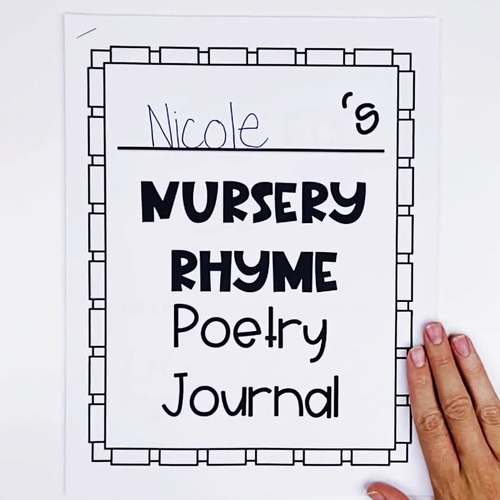 Nicole 's
NURSERY
RHYME
Poetry
Journal